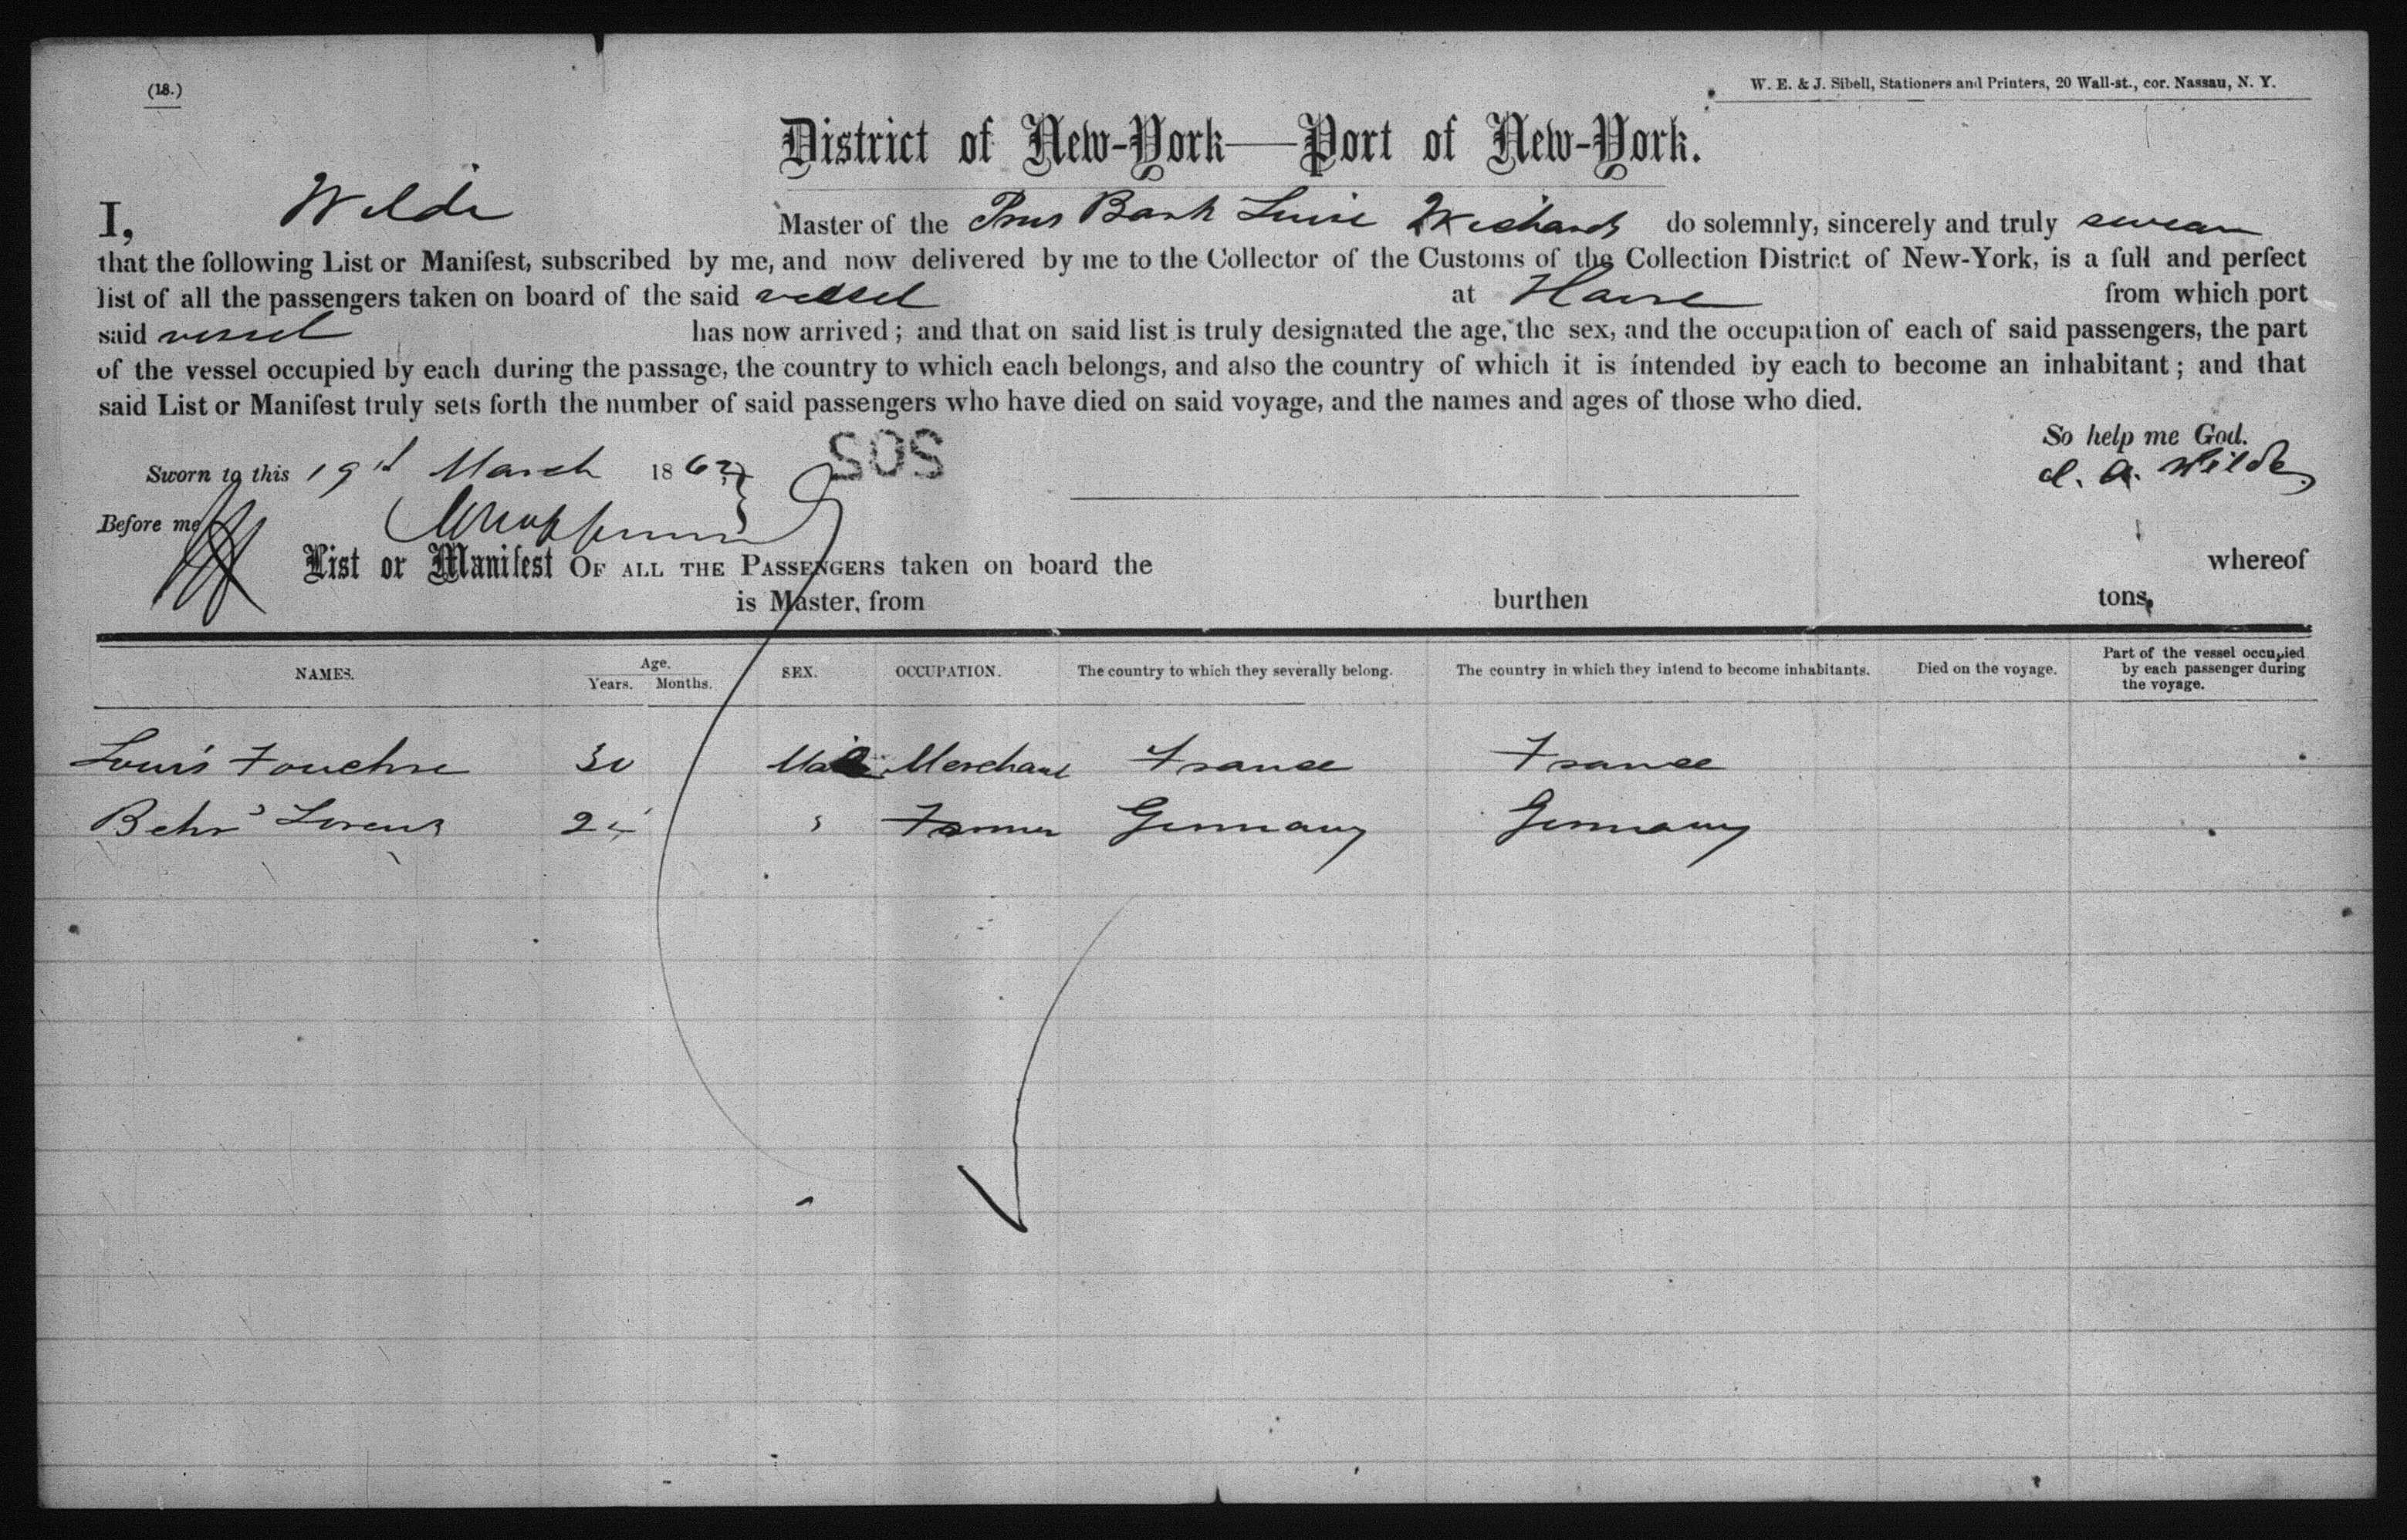 (18.)
W. E. & J. Sibell, Stationers and Printers, 20 Wall-st., cor. Nassau, N. Y.
District of New-York—Port of New-York.
I, Wilde Master of the Prus Bark Luise Wichards do solemnly, sincerely and truly swear
that the following List or Manifest, subscribed by me, and now delivered by me to the Collector of the Customs of the Collection District of New-York, is a full and perfect
list of all the passengers taken on board of the said vessel at Havre from which port
said vessel has now arrived; and that on said list is truly designated the age, the sex, and the occupation of each of said passengers, the part
of the vessel occupied by each during the passage, the country to which each belongs, and also the country of which it is intended by each to become an inhabitant; and that
said List or Manifest truly sets forth the number of said passengers who have died on said voyage, and the names and ages of those who died.
So help me God.
Sworn to this 19th March 1862 A. Wilde
Before me
List or Manifest OF ALL THE PASSENGERS taken on board the whereof
is Master, from burthen tons,
NAMES. Age. Years. Months. SEX. OCCUPATION. The country to which they severally belong. The country in which they intend to become inhabitants. Died on the voyage. Part of the vessel occupied by each passenger during the voyage.
Louis Fouchre 30 Male Merchant France France
Behr Lorenz Farmer Germany Germany